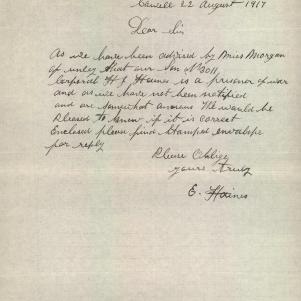 Cowell 22 August 1917
Dear Sir
As we have been advised by Miss Morgan
of Unley that our son No 3011
Corporal H J Haines is a prisoner of war
and as we have not been notified
and are somewhat anxious We would be
Pleased to know if it is correct
Enclosed please find stamped envelope
for reply
Please Oblige
yours truly
E. Haines